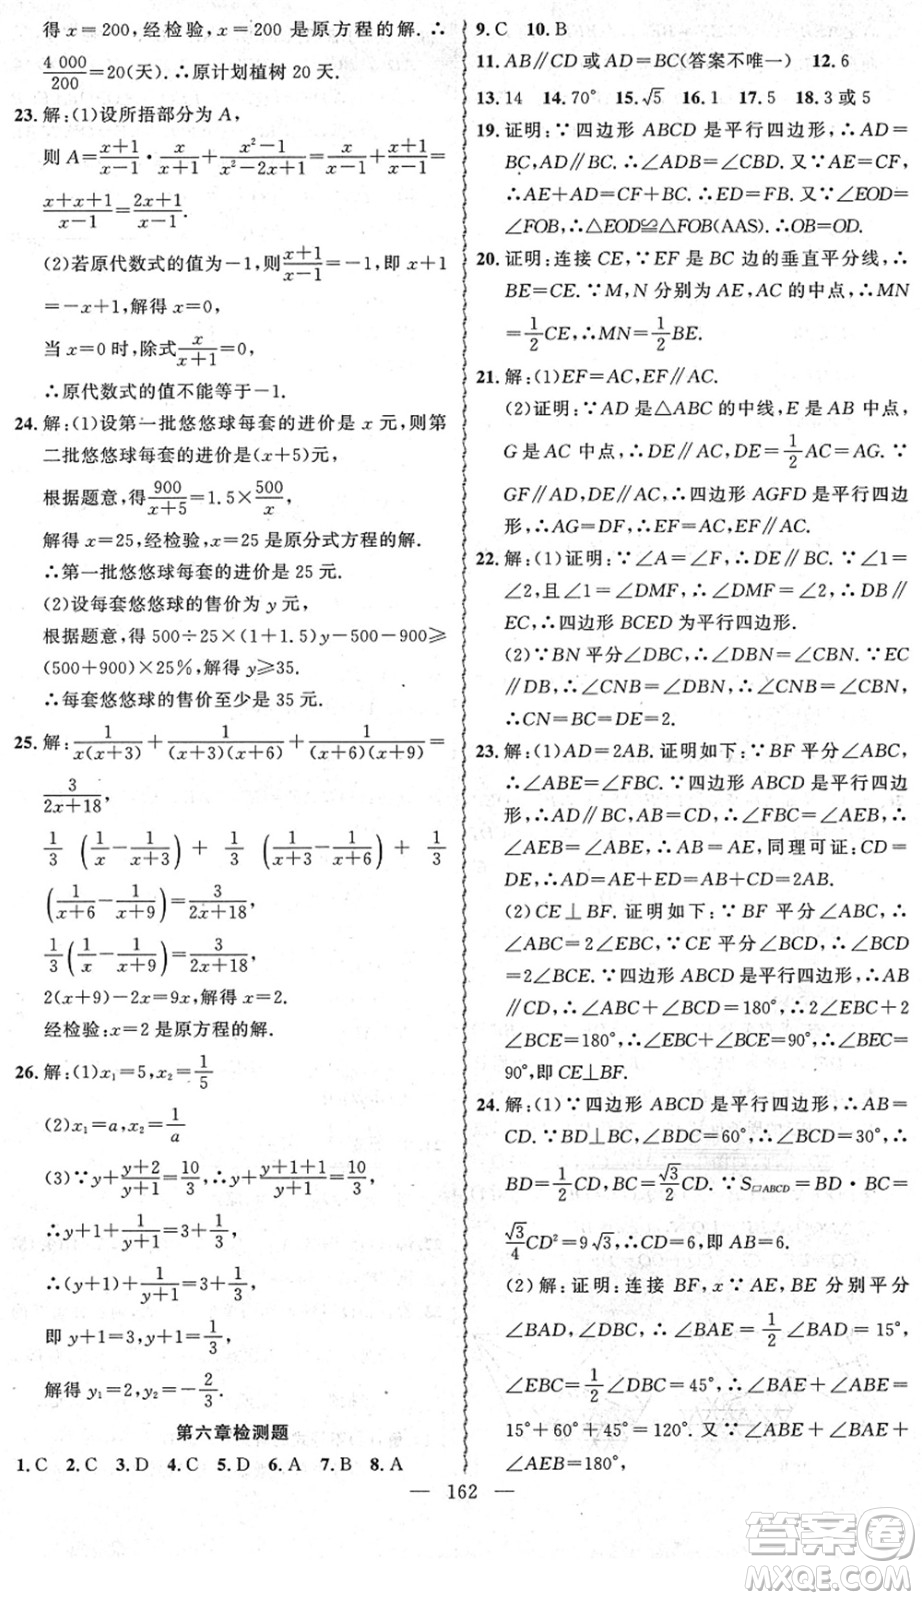 得 x=200,经检验,x=200 是原方程的解.∴
4 000/200=20(天).∴原计划植树 20 天.
23. 解:(1)设所捂部分为 A,
则 A=(x+1)/(x-1)·x/(x+1)+(x²-1)/(x²-2x+1)=x/(x-1)+(x+1)/(x-1)=
(x+x+1)/(x-1)=(2x+1)/(x-1).
(2)若原代数式的值为-1,则(x+1)/(x-1)=-1,即 x+1
=-x+1,解得 x=0,
当 x=0 时,除式x/(x+1)=0,
∴原代数式的值不能等于-1.
24. 解:(1)设第一批悠悠球每套的进价是 x 元,则第
二批悠悠球每套的进价是(x+5)元,
根据题意,得900/(x+5)=1.5×500/x,
解得 x=25,经检验,x=25 是原分式方程的解.
∴第一批悠悠球每套的进价是 25 元.
(2)设每套悠悠球的售价为 y 元,
根据题意,得 500÷25×(1+1.5)y-500-900≥
(500+900)×25%,解得 y≥35.
∴每套悠悠球的售价至少是 35 元.
25. 解:1/(x(x+3))+1/((x+3)(x+6))+1/((x+6)(x+9))=
3/(2x+18),
1/3(1/x-1/(x+3))+1/3(1/(x+3)-1/(x+6))+1/3
(1/(x+6)-1/(x+9))=3/(2x+18),
1/3(1/x-1/(x+9))=3/(2x+18),
2(x+9)-2x=9x,解得 x=2.
经检验:x=2 是原方程的解.
26. 解:(1)x₁=5,x₂=1/5
(2)x₁=a,x₂=1/a
(3)∵y+(y+2)/(y+1)=10/3,∴y+(y+1+1)/(y+1)=10/3,
∴y+1+1/(y+1)=3+1/3,
∴(y+1)+1/(y+1)=3+1/3,
即 y+1=3,y+1=1/3,
解得 y₁=2,y₂=-2/3.
第六章检测题
1. C 2. C 3. D 4. C 5. D 6. A 7. B 8. A
9. C 10. B
11. AB∥CD 或 AD=BC(答案不唯一) 12. 6
13. 14 14. 70° 15. √5 16. 1 17. 5 18. 3 或 5
19. 证明:∵四边形 ABCD 是平行四边形,∴AD=
BC,AD∥BC.∴∠ADB=∠CBD.又∵AE=CF,
∴AE+AD=CF+BC.∴ED=FB.又∵∠EOD=
∠FOB,∴△EOD≌△FOB(AAS).∴OB=OD.
20. 证明:连接 CE,∵EF 是 BC 边的垂直平分线,∴
BE=CE.∵M,N 分别为 AE,AC 的中点,∴MN
=1/2CE,∴MN=1/2BE.
21. 解:(1)EF=AC,EF∥AC.
(2)证明:∵AD 是△ABC 的中线,E 是 AB 中点,
G 是 AC 中点,∴DE∥AC,DE=1/2AC=AG.∵
GF∥AD,DE∥AC,∴四边形 AGFD 是平行四边
形,∴AG=DF,∴EF=AC,EF∥AC.
22. 解:(1)证明:∵∠A=∠F,∴DE∥BC.∵∠1=
∠2,且∠1=∠DMF,∴∠DMF=∠2,∴DB∥
EC,∴四边形 BCED 为平行四边形.
(2)∵BN 平分∠DBC,∴∠DBN=∠CBN.∵EC
∥DB,∴∠CNB=∠DBN,∴∠CNB=∠CBN,
∴CN=BC=DE=2.
23. 解:(1)AD=2AB.证明如下:∵BF 平分∠ABC,
∴∠ABE=∠FBC.∵四边形 ABCD 是平行四边
形,∴AD∥BC,AB=CD,∴∠FBC=∠AEB,∴
∠ABE=∠AEB,∴AB=AE,同理可证:CD=
DE,∴AD=AE+ED=AB+CD=2AB.
(2)CE⊥BF.证明如下:∵BF 平分∠ABC,∴
∠ABC=2∠EBC,∵CE 平分∠BCD,∴∠BCD
=2∠BCE.∵四边形 ABCD 是平行四边形,∴AB
∥CD,∴∠ABC+∠BCD=180°,∴2∠EBC+2
∠BCE=180°,∴∠EBC+∠BCE=90°,∴∠BEC=
90°,即 CE⊥BF.
24. 解:(1)∵四边形 ABCD 是平行四边形,∴AB=
CD.∵BD⊥BC,∠BDC=60°,∴∠BCD=30°,∴
BD=1/2CD,BC=√3/2CD.∵S▱ABCD=BD·BC=
√3/4CD²=9√3,∴CD=6,即 AB=6.
(2)解:证明:连接 BF,x∵AE,BE 分别平分
∠BAD,∠DBC,∴∠BAE=1/2∠BAD=15°,
∠EBC=1/2∠DBC=45°,∴∠BAE+∠ABE=
15°+60°+45°=120°.又∵∠ABE+∠BAE+
∠AEB=180°,
— 162 —
答案圈
MXQE.COM